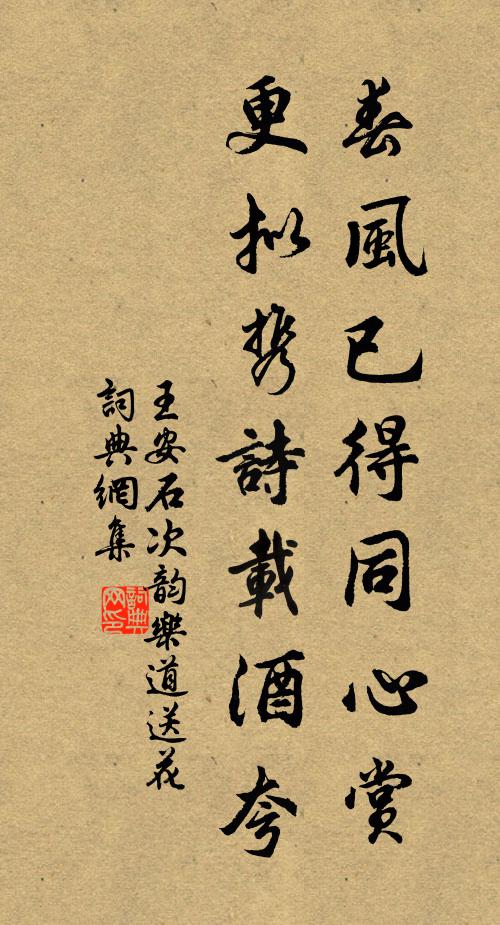 春風已得同心賞
更拟携詩載酒夸
王安石次韵樂道送花
詞典網集
詞典
网印